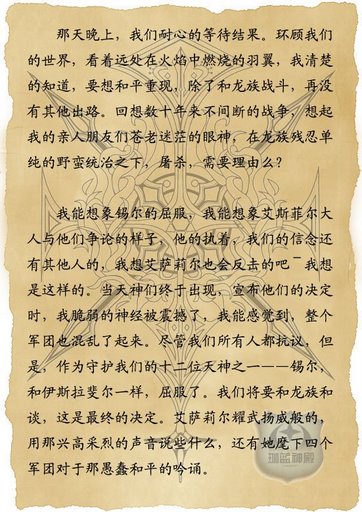 那天晚上，我们耐心的等待结果。环顾我们
的世界，看着远处在火焰中燃烧的羽翼，我清楚
的知道，要想和平重现，除了和龙族战斗，再没
有其他出路。回想数十年来不间断的战争，想起
我的亲人朋友们苍老迷茫的眼神，在龙族残忍单
纯的野蛮统治之下，屠杀，需要理由么？
我能想象锡尔的屈服，我能想象艾斯菲尔大
人与他们争论的样子，他的执着，我们的信念还
有其他人的，我想艾萨莉尔也会反击的吧~我想
是这样的。当天神们终于出现，宣布他们的决定
时，我脆弱的神经被震撼了，我能感觉到，整个
军团也混乱了起来。尽管我们所有人都抗议，但
是，作为守护我们的十二位天神之一----锡尔，
和伊斯拉斐尔一样，屈服了。我们将要和龙族和
谈，这是最终的决定。艾萨莉尔耀武扬威般的，
用那兴高采烈的声音说些什么，还有她麾下四个
军团对于那愚蠢和平的吟诵。